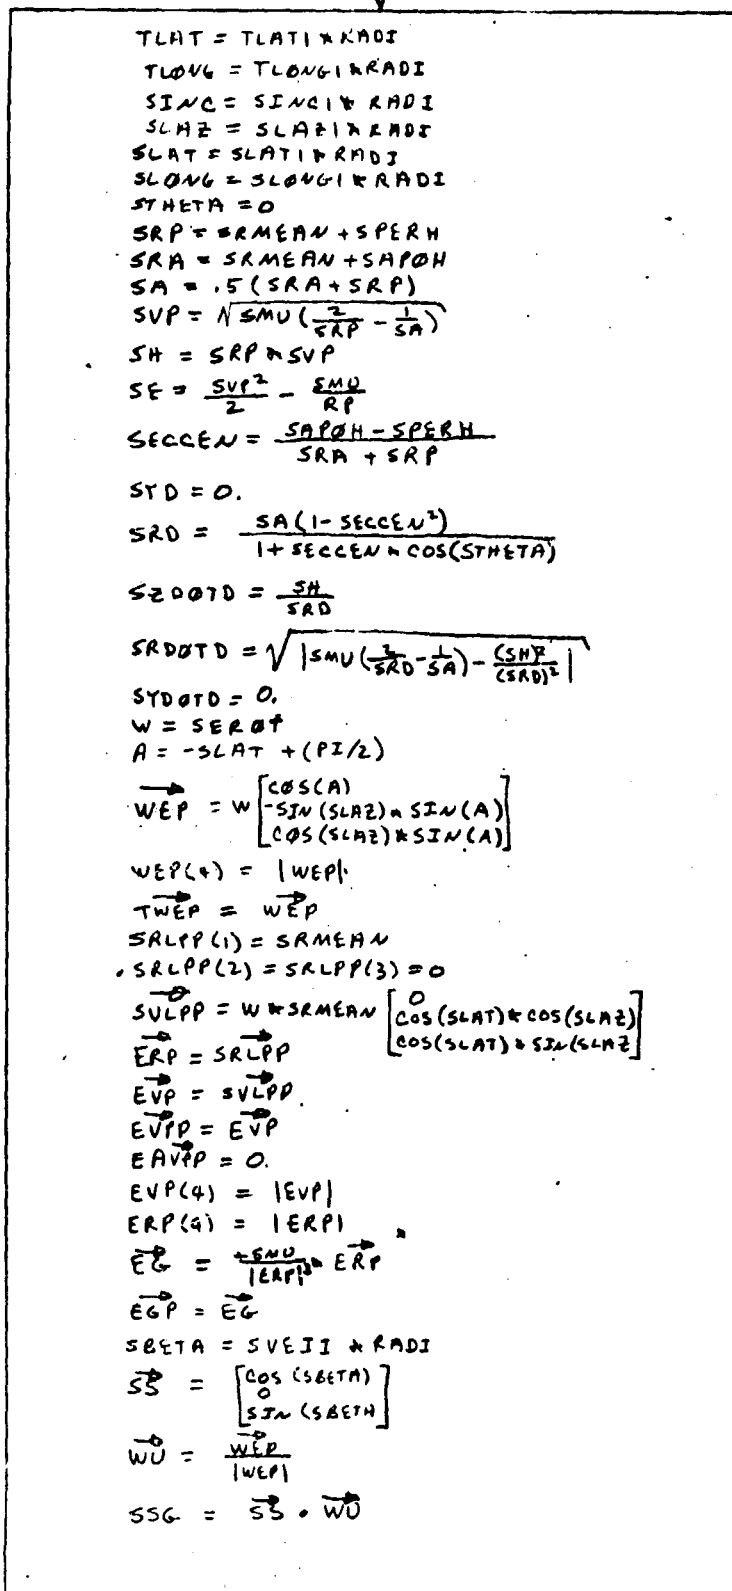 TLAT = TLAT1 * RADI
TLØNG = TLØNG1 * RADI
SINC = SINC1 * RADI
SLAZ = SLAZ1 * RADI
SLAT = SLAT1 * RADI
SLØNG = SLØNG1 * RADI
STHETA = 0
SRP = SRMEAN + SPERH
SRA = SRMEAN + SAPØH
SA = .5 (SRA + SRP)
SVP = √(SMU (2/SRP - 1/SA))
SH = SRP * SVP
SE = SVP²/2 - SMU/RP
SECCEN = (SAPØH - SPERH)/(SRA + SRP)
STD = 0.
SRD = SA(1 - SECCEN²)/(1 + SECCEN * COS(STHETA))
SZDØTD = SH/SRD
SRDØTD = √|SMU (2/SRD - 1/SA) - (SH)²/(SRD)²|
SYDØTD = 0.
W = SERØT
A = -SLAT + (PI/2)
WEP→ = W [CØS(A)
-SIN(SLAZ) * SIN(A)
CØS(SLAZ) * SIN(A)]
WEP(4) = |WEP|
TWEP→ = WEP→
SRLPP(1) = SRMEAN
SRLPP(2) = SRLPP(3) = 0
SVLPP→ = W * SRMEAN [0
COS(SLAT) * COS(SLAZ)
COS(SLAT) * SIN(SLAZ]
ERP→ = SRLPP→
EVP→ = SVLPP→
EVPP→ = EVP→
EAVPP→ = 0.
EVP(4) = |EVP|
ERP(4) = |ERP|
EG→ = SMU/|ERP|³ * ERP→
EGP→ = EG→
SBETA = SVEJI * RADI
SS→ = [COS(SBETA)
0
SIN(SBETA]
WU→ = WEP→/|WEP|
SSG = SS→ · WU→